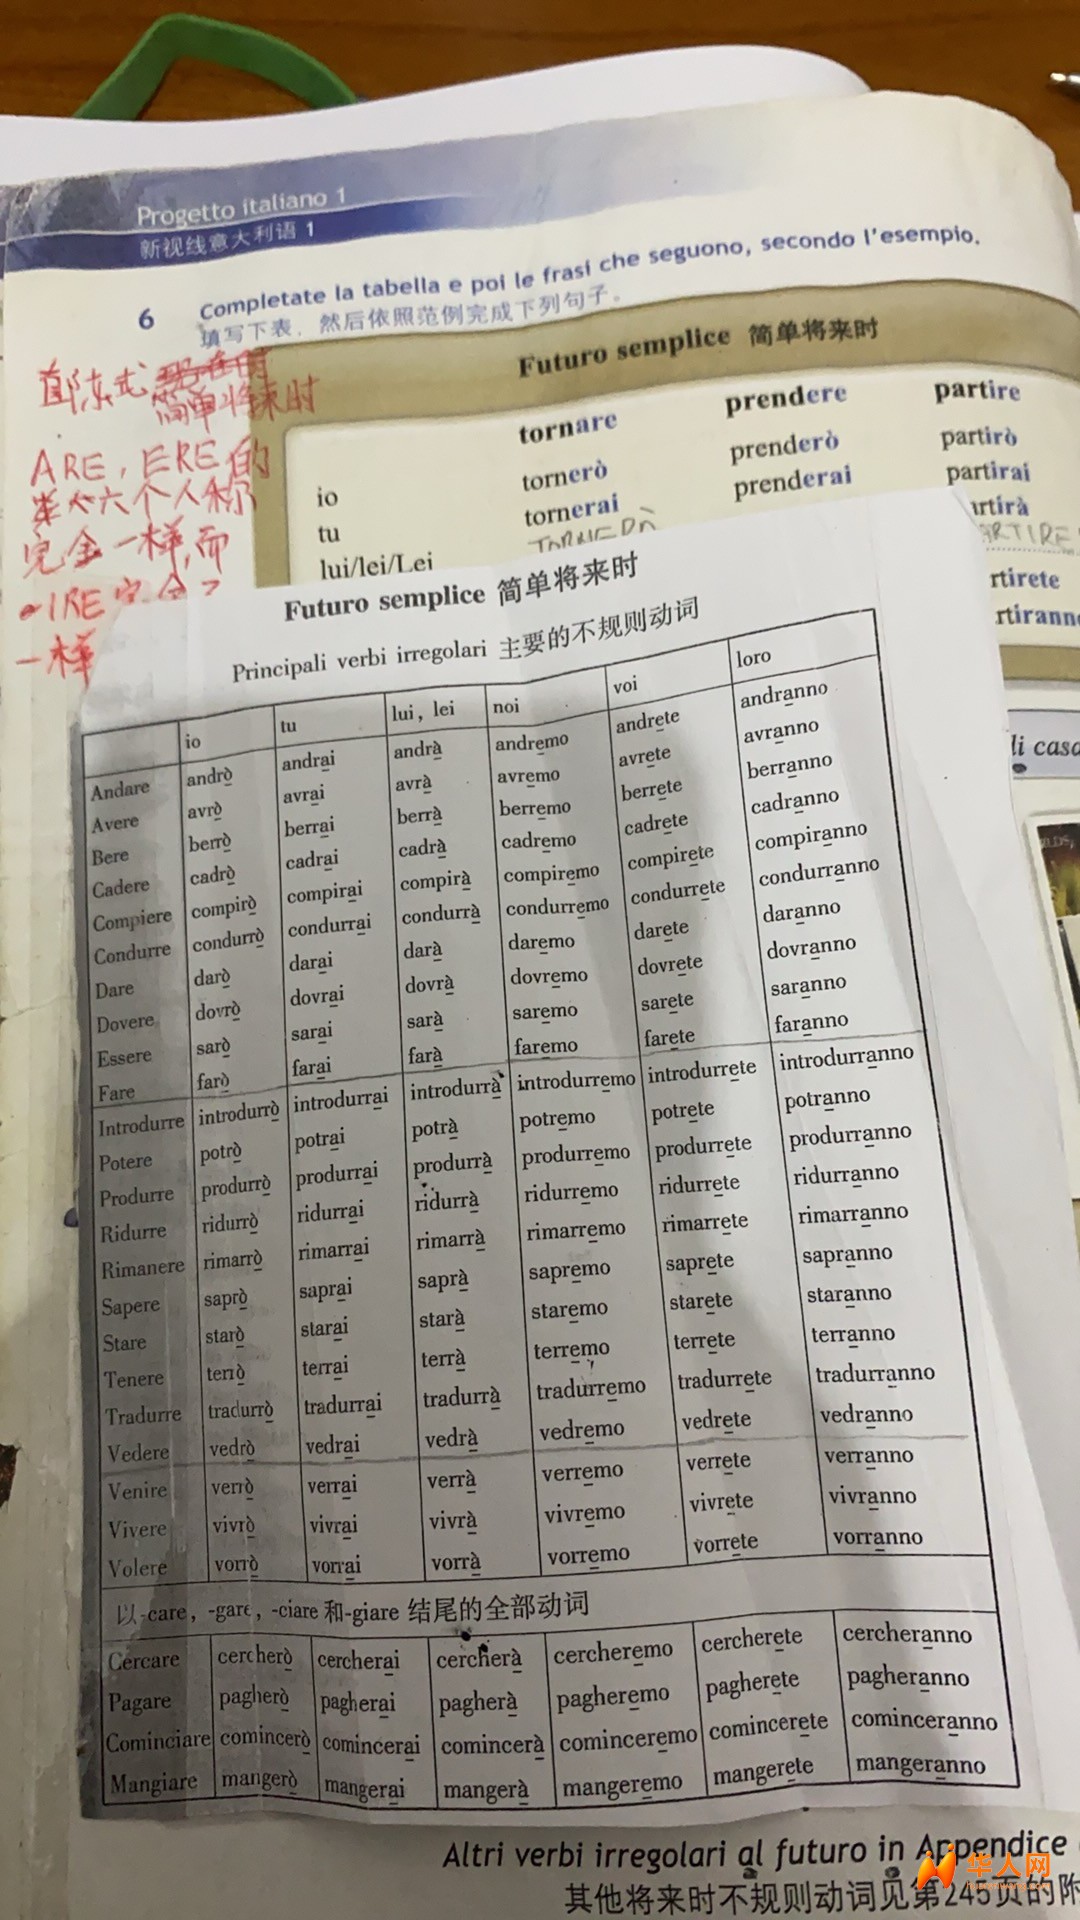 Progetto italiano 1
新视线意大利语 1
6 Completate la tabella e poi le frasi che seguono, secondo l'esempio.
填写下表，然后依照范例完成下列句子。
Futuro semplice 简单将来时
tornare prendere partire
io tornerò prenderò partirò
tu tornerai prenderai partirai
lui/lei/Lei TORNERÀ rtirà
ARTIRE
rtirete
rtiranno
直陈式
简单将来时
ARE, ERE的
六个人称
完全一样,而
-IRE
一样
Futuro semplice 简单将来时
Principali verbi irregolari 主要的不规则动词
io tu lui, lei noi voi loro
Andare andrò andrai andrà andremo andrete andranno
Avere avrò avrai avrà avremo avrete avranno
Bere berrò berrai berrà berremo berrete berranno
Cadere cadrò cadrai cadrà cadremo cadrete cadranno
Compiere compirò compirai compirà compiremo compirete compiranno
Condurre condurrò condurrai condurrà condurremo condurrete condurranno
Dare darò darai darà daremo darete daranno
Dovere dovrò dovrai dovrà dovremo dovrete dovranno
Essere sarò sarai sarà saremo sarete saranno
Fare farò farai farà faremo farete faranno
Introdurre introdurrò introdurrai introdurrà introdurremo introdurrete introdurranno
Potere potrò potrai potrà potremo potrete potranno
Produrre produrrò produrrai produrrà produrremo produrrete produrranno
Ridurre ridurrò ridurrai ridurrà ridurremo ridurrete ridurranno
Rimanere rimarrò rimarrai rimarrà rimarremo rimarrete rimarranno
Sapere saprò saprai saprà sapremo saprete sapranno
Stare starò starai starà staremo starete staranno
Tenere terrò terrai terrà terremo terrete terranno
Tradurre tradurrò tradurrai tradurrà tradurremo tradurrete tradurranno
Vedere vedrò vedrai vedrà vedremo vedrete vedranno
Venire verrò verrai verrà verremo verrete verranno
Vivere vivrò vivrai vivrà vivremo vivrete vivranno
Volere vorrò vorrai vorrà vorremo vorrete vorranno
以-care，-gare，-ciare 和-giare 结尾的全部动词
Cercare cercherò cercherai cercherà cercheremo cercherete cercheranno
Pagare pagherò pagherai pagherà pagheremo pagherete pagheranno
Cominciare comincerò comincerai comincerà cominceremo comincerete cominceranno
Mangiare mangerò mangerai mangerà mangeremo mangerete mangeranno
li casa
Altri verbi irregolari al futuro in Appendice
其他将来时不规则动词见第245页的附
华人网